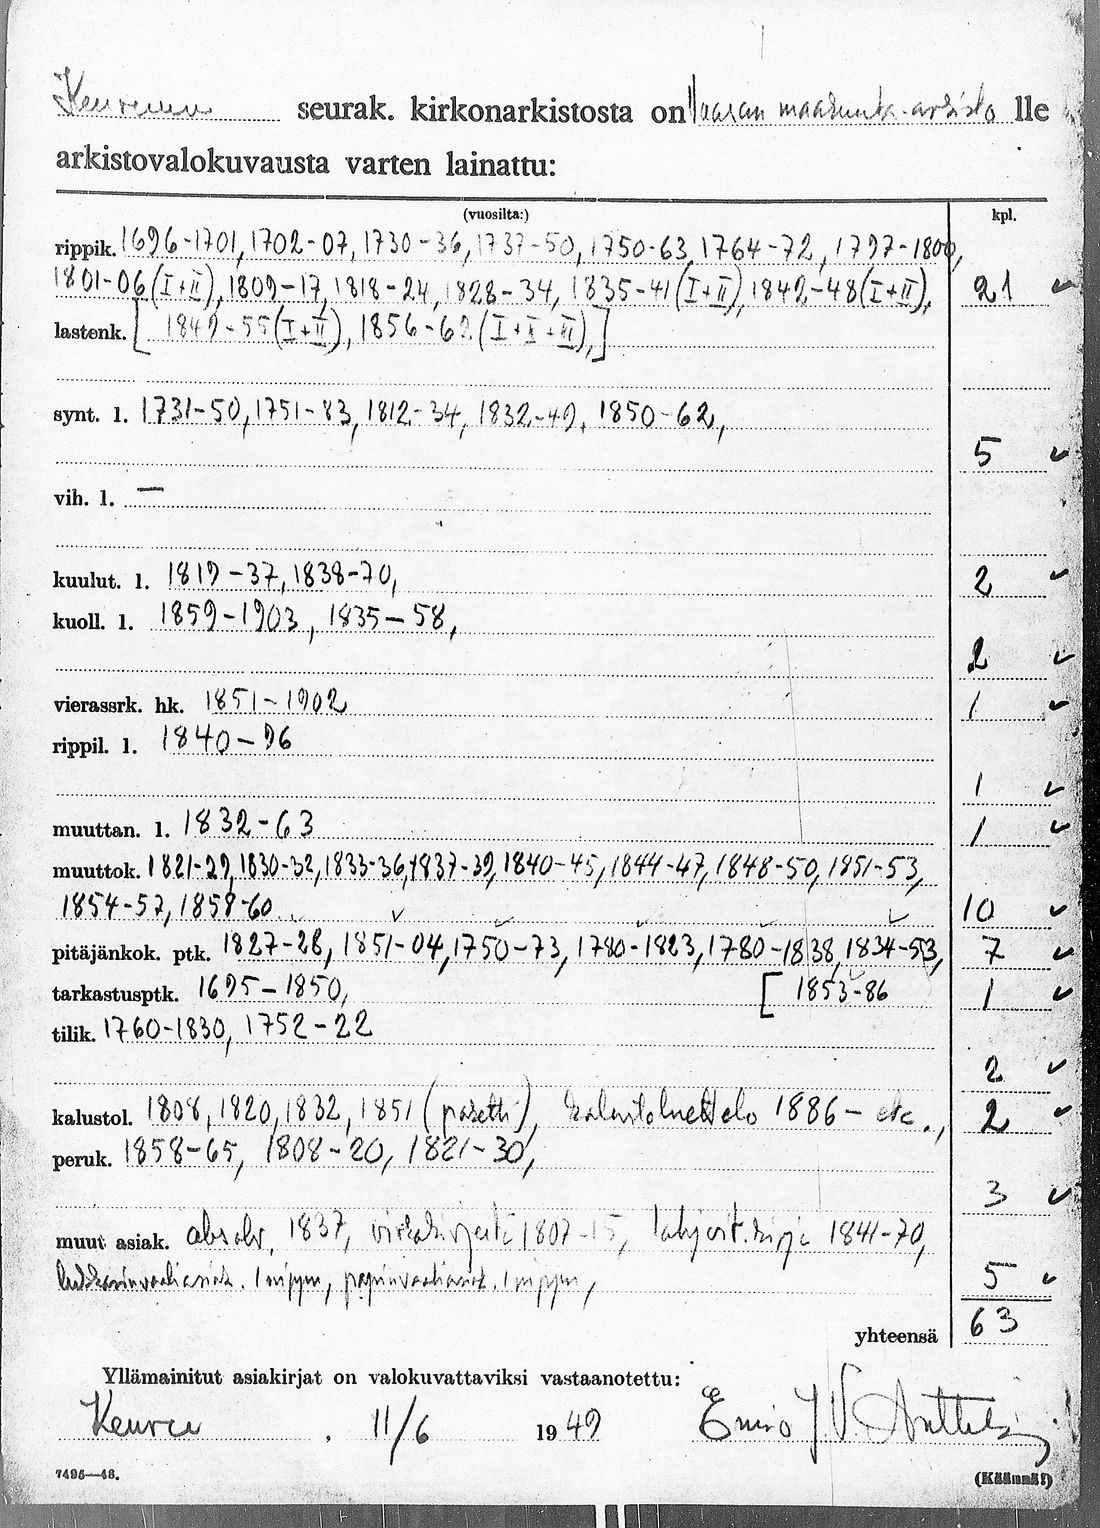 Keuruun seurak. kirkonarkistosta on Vaasan maakunta-arkisto lle
arkistovalokuvausta varten lainattu:
(vuosilta:) kpl.
rippik. 1696-1701, 1702-07, 1730-36, 1737-50, 1750-63, 1764-72, 1797-1800,
1801-06 (I+II), 1809-17, 1818-24, 1828-34, 1835-41 (I+II), 1842-48 (I+II), 21 ✓
lastenk. [1849-55 (I+II), 1856-62 (I+II+III),]
synt. l. 1731-50, 1751-83, 1812-34, 1832-49, 1850-62,
5 ✓
vih. l. —
kuulut. l. 1819-37, 1838-70, 2 ✓
kuoll. l. 1859-1903, 1835-58,
2 ✓
vierassrk. hk. 1851-1902 1 ✓
rippil. l. 1840-96
1 ✓
muuttan. l. 1832-63 1 ✓
muuttok. 1821-29, 1830-32, 1833-36, 1837-39, 1840-45, 1844-47, 1848-50, 1851-53,
1854-57, 1858-60 10 ✓
pitäjänkok. ptk. 1827-28, 1851-04, 1750-73, 1780-1823, 1780-1838, 1834-53, 7 ✓
tarkastusptk. 1695-1850, [1853-86 1 ✓
tilik. 1760-1830, 1752-22
2 ✓
kalustol. 1808, 1820, 1832, 1851 (pasetti), kalustoluettelo 1886- etc., 2 ✓
peruk. 1858-65, 1808-20, 1821-30,
3 ✓
muut asiak. absolv. 1837, virkakirjeitä 1807-15, lahjoit.kirja 1841-70,
lukkarinvaaliasiak. 1 nippu, papinvaaliasiak. 1 nippu, 5 ✓
yhteensä 63
Yllämainitut asiakirjat on valokuvattaviksi vastaanotettu:
Keuruu . 11/6 1949 Eino J V Anttila
7495—48. (Käännä!)